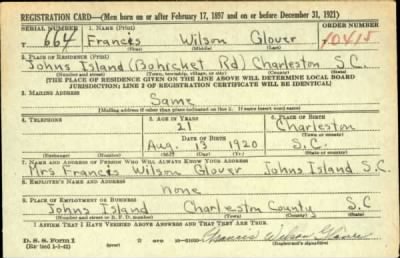 REGISTRATION CARD—(Men born on or after February 17, 1897 and on or before December 31, 1921)
SERIAL NUMBER 1. NAME (Print) ORDER NUMBER
T 664 Francis Wilson Glover 10415
(First) (Middle) (Last)
2. PLACE OF RESIDENCE (Print)
Johns Island (Bohicket Rd) Charleston S.C.
(Number and street) (Town, township, village, or city) (County) (State)
[THE PLACE OF RESIDENCE GIVEN ON THE LINE ABOVE WILL DETERMINE LOCAL BOARD
JURISDICTION; LINE 2 OF REGISTRATION CERTIFICATE WILL BE IDENTICAL]
3. MAILING ADDRESS
Same
[Mailing address if other than place indicated on line 2. If same insert word same]
4. TELEPHONE 5. AGE IN YEARS 6. PLACE OF BIRTH
21 Charleston
DATE OF BIRTH (Town or county)
Aug. 13 1920 S.C.
(Exchange) (Number) (Mo.) (Day) (Yr.) (State or country)
7. NAME AND ADDRESS OF PERSON WHO WILL ALWAYS KNOW YOUR ADDRESS
Mrs Francis Wilson Glover Johns Island S.C.
8. EMPLOYER'S NAME AND ADDRESS
none
9. PLACE OF EMPLOYMENT OR BUSINESS
Johns Island Charleston County S.C
(Number and street or R. F. D. number) (Town) (County) (State)
I AFFIRM THAT I HAVE VERIFIED ABOVE ANSWERS AND THAT THEY ARE TRUE.
D. S. S. Form 1 Francis Wilson Glover
(Registrant's signature)